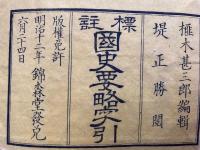 標註
榧木甚三郎編輯
堤正勝閲
國史要畧字引
版權免許
明治十二年 錦森堂發兌
六月二十四日